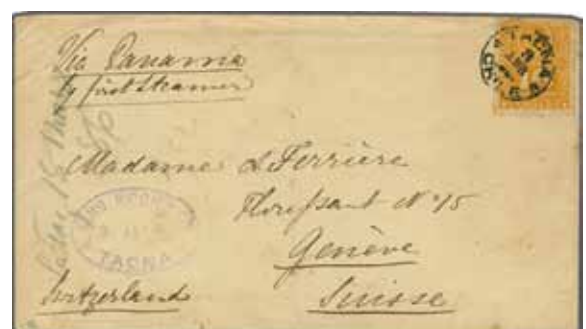 Via Panama
p first Steamer
Madame L Ferrière
Florissant No 15
Genève
Suisse
Switzerland
TACNA